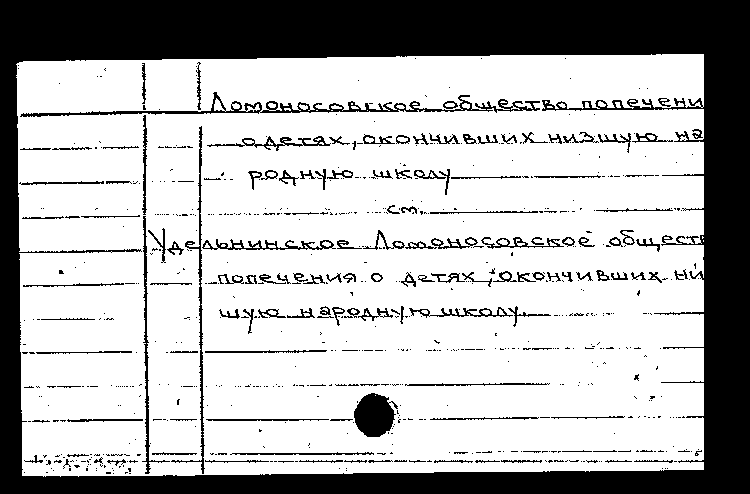 Ломоносовское общество попечени
о детях, окончивших низшую на
родную школу
см.
Удельнинское Ломоносовское обществ
попечения о детях, окончивших ни
шую народную школу.